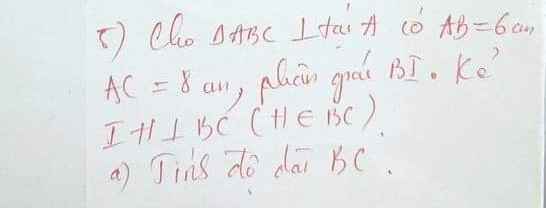 5) Cho ΔABC ⊥ tại A có AB = 6 cm
AC = 8 cm, phân giác BI. Kẻ
IH ⊥ BC (H ∈ BC).
a) Tính độ dài BC.